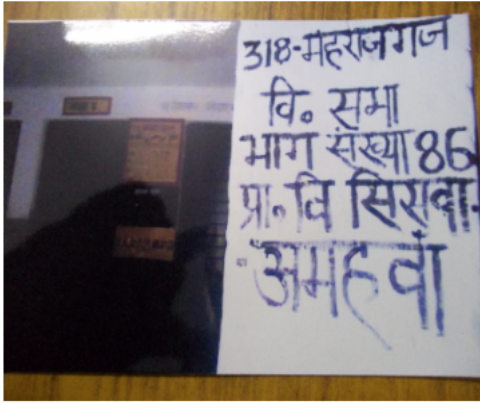 318-महराजगंज
वि॰ सभा
भाग संख्या 86
प्रा॰ वि सिसवा
अमहवा